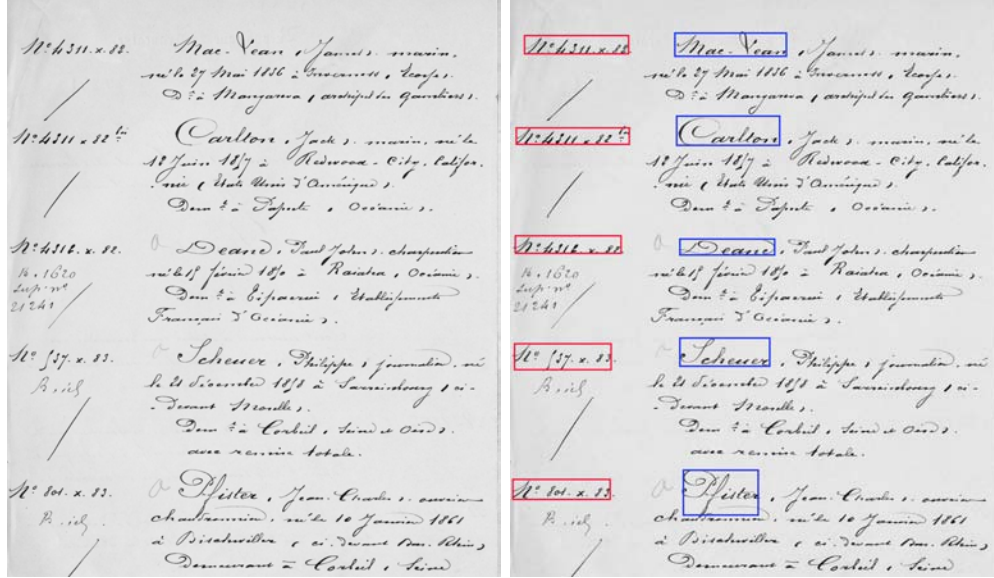 Nº 4311. x. 82. Mac-Vean, James, marin,
né le 27 Mai 1836 à Inverness, Ecosse,
Dt à Mangareva, archipel des Gambiers,
Nº 4311 x 82 bis Carlton, Jack, marin, né le
18 Juin 1857 à Redwood-City, Califor-
nie (Etats Unis d'Amérique).
Demt à Papeete, Océanie,
Nº 4316. x. 82. Deane, Paul John, charpentier
né le 15 février 1850 à Raiatea, Océanie,
16.1620
Sup. nt
21241
Demt à Etablissements
Français d'Océanie,
Nº 537. x. 83. Scheuer, Philippe, journalier, né
le 21 décembre 1858 à Sarreinbourg, ci-
devant Moselle,
Demt à Corbeil, Seine et Oise,
avec remise totale.
Nº 801. x. 83. Pfister, Jean Charles, ouvrier
né le 10 Janvier 1861
à Bischwiller, ci-devant Bas-Rhin,
Demeurant à Corbeil, Seine
Nº 4311. x. 82 Mac-Vean, James, marin,
né le 27 Mai 1836 à Inverness, Ecosse,
Dt à Mangareva, archipel des Gambiers,
Nº 4311 x 82 bis Carlton, Jack, marin, né le
18 Juin 1857 à Redwood-City, Califor-
nie (Etats Unis d'Amérique).
Demt à Papeete, Océanie,
Nº 4316. x. 82 Deane, Paul John, charpentier
né le 15 février 1850 à Raiatea, Océanie,
16.1620
Sup. nt
21241
Demt à Etablissements
Français d'Océanie,
Nº 537. x. 83. Scheuer, Philippe, journalier, né
le 21 décembre 1858 à Sarreinbourg, ci-
devant Moselle,
Demt à Corbeil, Seine et Oise,
avec remise totale.
Nº 801. x. 83. Pfister, Jean Charles, ouvrier
né le 10 Janvier 1861
à Bischwiller, ci-devant Bas-Rhin,
Demeurant à Corbeil, Seine